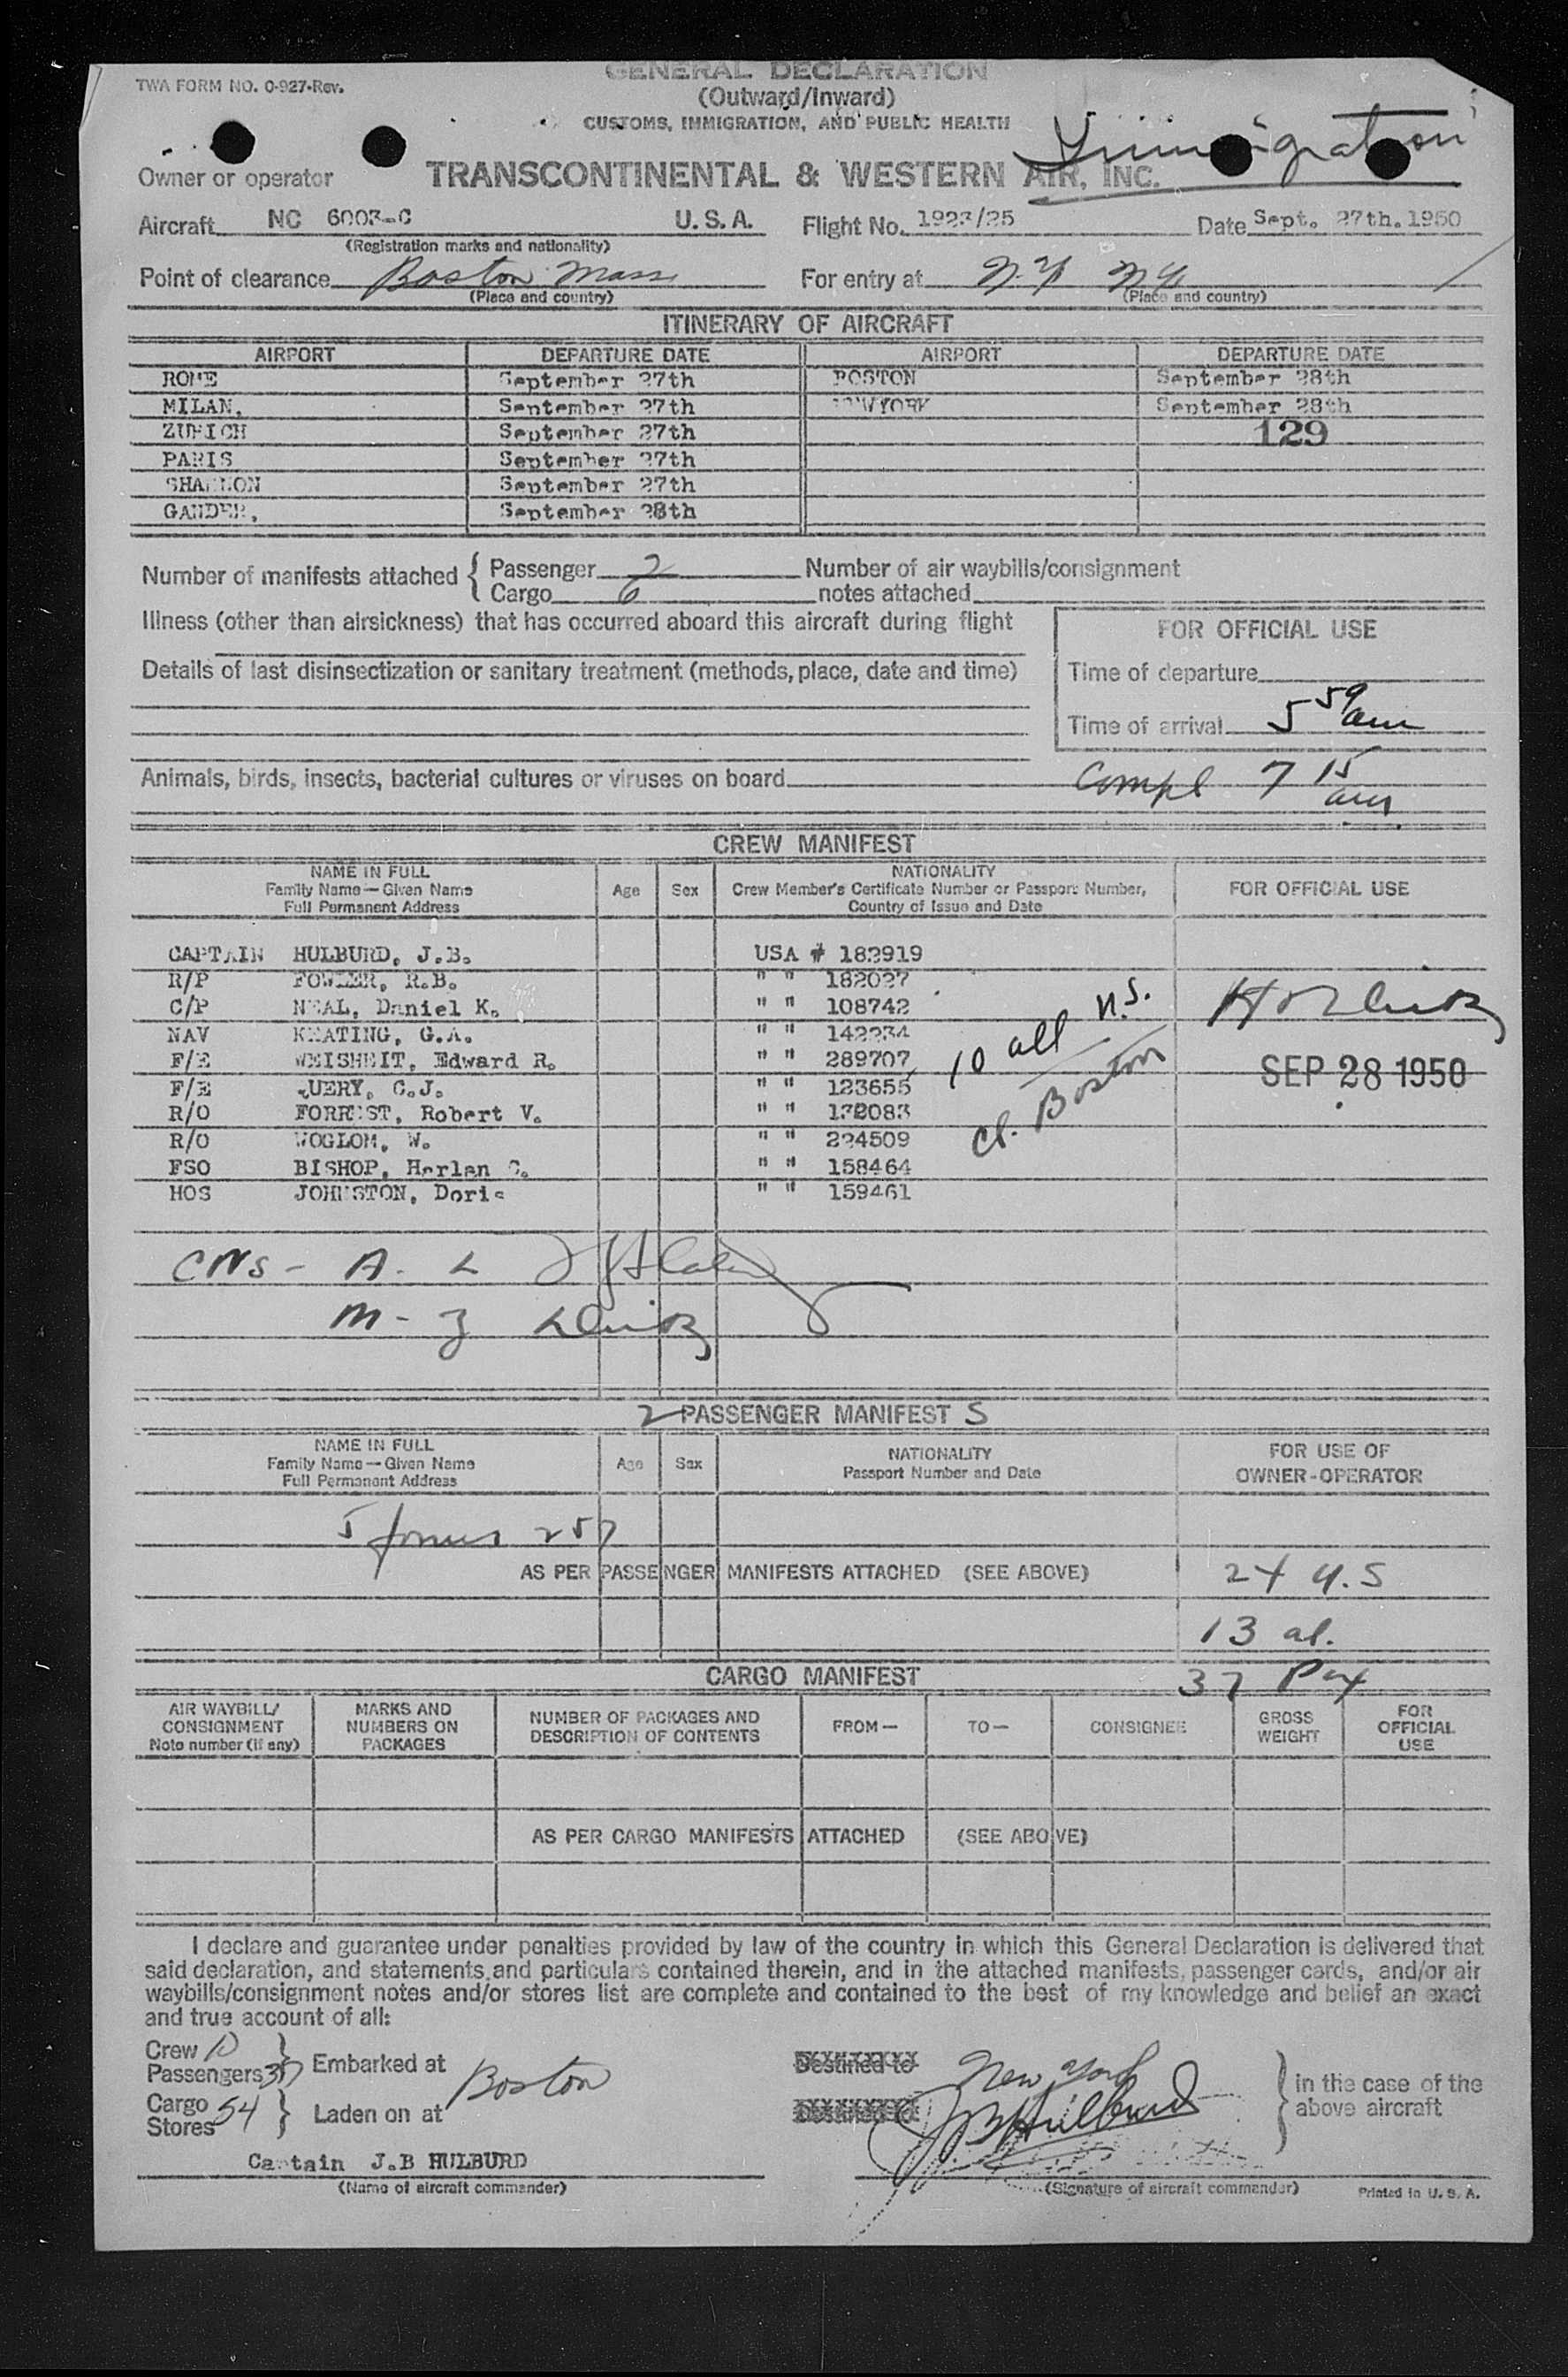 TWA FORM NO. O-927-Rev.
GENERAL DECLARATION
(Outward/Inward)
CUSTOMS, IMMIGRATION, AND PUBLIC HEALTH
Immigration
Owner or operator TRANSCONTINENTAL & WESTERN AIR, INC.
Aircraft NC 6003-C U.S.A. Flight No. 1923/25 Date Sept. 27th. 1950
(Registration marks and nationality)
Point of clearance Boston Mass For entry at N.Y. N.Y.
(Place and country) (Place and country)
ITINERARY OF AIRCRAFT
AIRPORT DEPARTURE DATE AIRPORT DEPARTURE DATE
ROME September 27th BOSTON September 28th
MILAN, September 27th NEWYORK September 28th
ZURICH September 27th 129
PARIS September 27th
SHANNON September 27th
GANDER, September 28th
Number of manifests attached { Passenger 2 Number of air waybills/consignment
Cargo 6 notes attached
Illness (other than airsickness) that has occurred aboard this aircraft during flight
FOR OFFICIAL USE
Details of last disinsectization or sanitary treatment (methods, place, date and time)
Time of departure
Time of arrival 5 59 am
Animals, birds, insects, bacterial cultures or viruses on board
Compl 7 15 am
CREW MANIFEST
NAME IN FULL
Family Name — Given Name
Full Permanent Address
Age Sex
NATIONALITY
Crew Member's Certificate Number or Passport Number,
Country of Issue and Date
FOR OFFICIAL USE
CAPTAIN HULBURD, J.B. USA # 182919
R/P FOWLER, R.B. " " 182027
C/P NEAL, Daniel K. " " 108742
NAV KEATING, G.A. " " 142234
F/E WEISHEIT, Edward R. " " 289707
F/E QUERY, C.J. " " 123655
R/O FORREST, Robert V. " " 132083
R/O WOGLOM, W. " " 224509
FSO BISHOP, Harlan C. " " 158464
HOS JOHNSTON, Doris " " 159461
10 all
cl. Boston
SEP 28 1950
CNS - A. L
M-
2 PASSENGER MANIFEST S
NAME IN FULL
Family Name — Given Name
Full Permanent Address
Age Sex
NATIONALITY
Passport Number and Date
FOR USE OF
OWNER-OPERATOR
5 forms 257
AS PER PASSENGER MANIFESTS ATTACHED (SEE ABOVE) 24 U.S
13 al.
37 Pax
CARGO MANIFEST
AIR WAYBILL/
CONSIGNMENT
Note number (if any)
MARKS AND
NUMBERS ON
PACKAGES
NUMBER OF PACKAGES AND
DESCRIPTION OF CONTENTS
FROM —
TO —
CONSIGNEE
GROSS
WEIGHT
FOR
OFFICIAL
USE
AS PER CARGO MANIFESTS ATTACHED (SEE ABOVE)
I declare and guarantee under penalties provided by law of the country in which this General Declaration is delivered that
said declaration, and statements and particulars contained therein, and in the attached manifests, passenger cards, and/or air
waybills/consignment notes and/or stores list are complete and contained to the best of my knowledge and belief an exact
and true account of all:
Crew 10
Passengers 37 } Embarked at Boston Destined to New York
Cargo
Stores 54 } Laden on at Destined to
J B Hulburd
} in the case of the
above aircraft
Captain J.B HULBURD
(Name of aircraft commander) (Signature of aircraft commander) Printed in U. S. A.